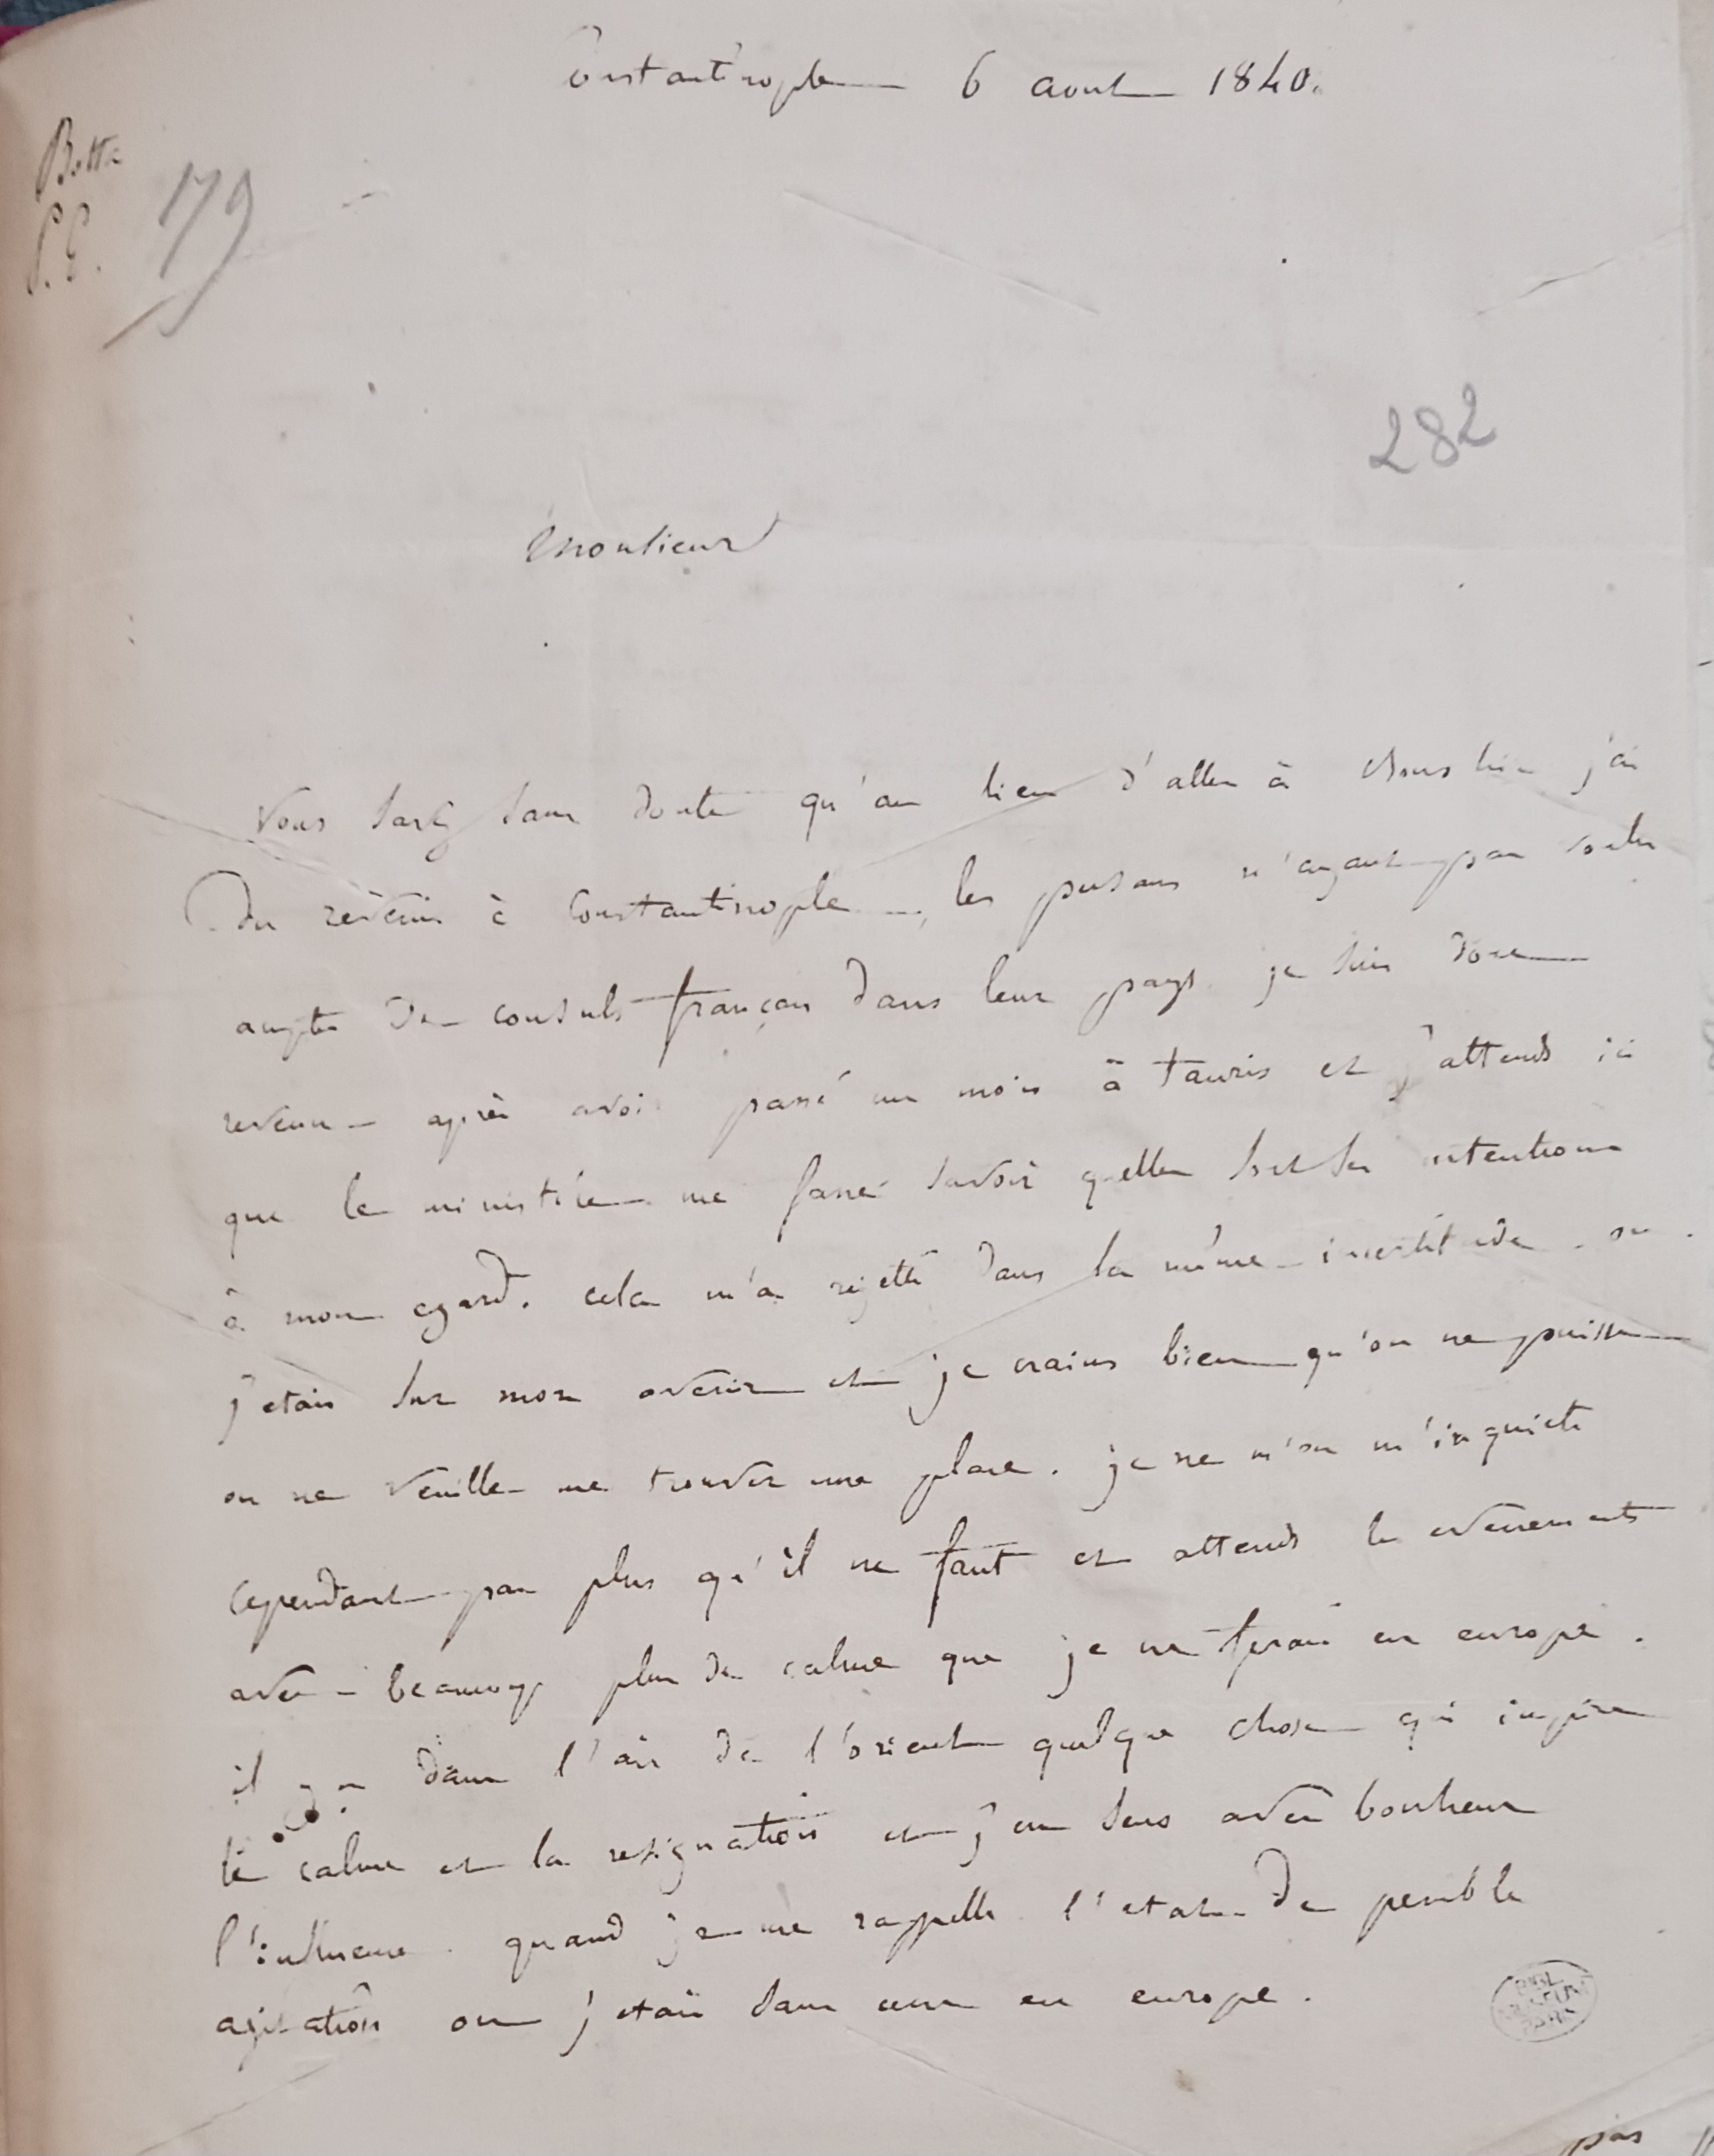 Constantinople 6 aout 1840.
Botta
P. E.
179
282
Monsieur
Vous savez sans doute qu'au lieu d'aller à j'ai
du revenir à Constantinople, les persans n'ayant pas voulu
de consuls français dans leur pays je suis donc
revenu après avoir passé un mois à tauris et j'attends ici
que le ministère me fasse savoir quelles sont ses intentions
à mon egard. cela m'a rejetté dans la même incertitude ou
j'etais sur mon avenir et je crains bien qu'on ne puisse
ou ne veuille me trouver une place. je ne m'en m'inquiete
cependant pas plus qu'il ne faut et attends les evenements
avec beaucoup plus de calme que je ne ferais en europe.
il y a dans l'air de l'orient quelque chose qui inspire
le calme et la resignation et j'en sens avec bonheur
l'influence. quand je me rappelle l'etat de penible
agitation ou j'etais sans cesse en europe.
BIBL
MUSEUM
PARIS
pas